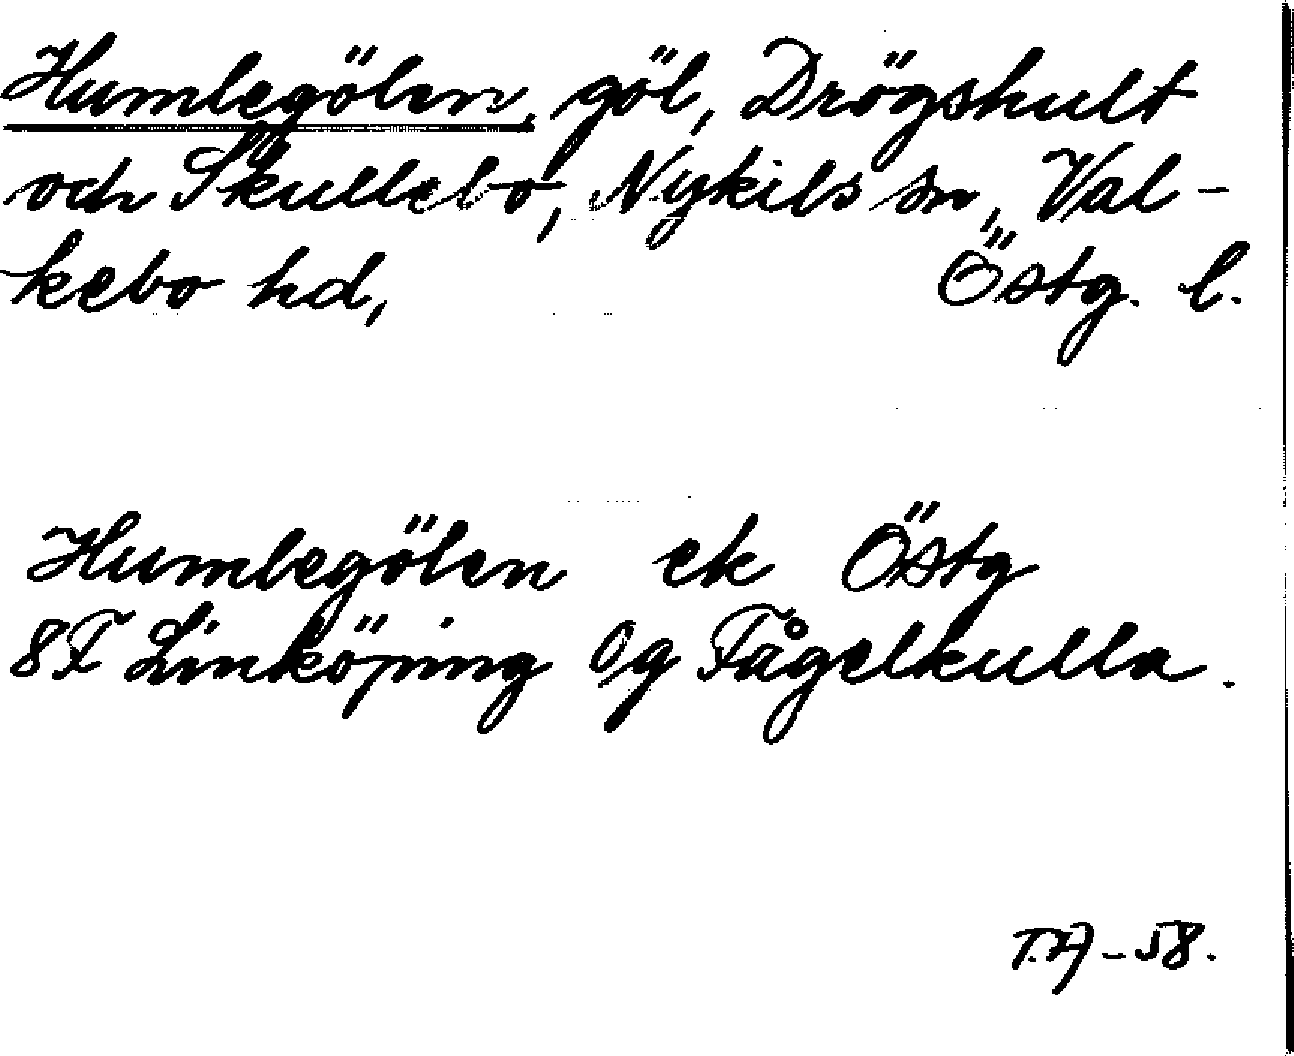 Humlegölen, göl, Drögshult
och Skullebo, Nykils sn, Val-
kebo hd, Östg. l.
Humlegölen ek Östg
8F Linköping 0g Fågelkulla.
T.A-58.